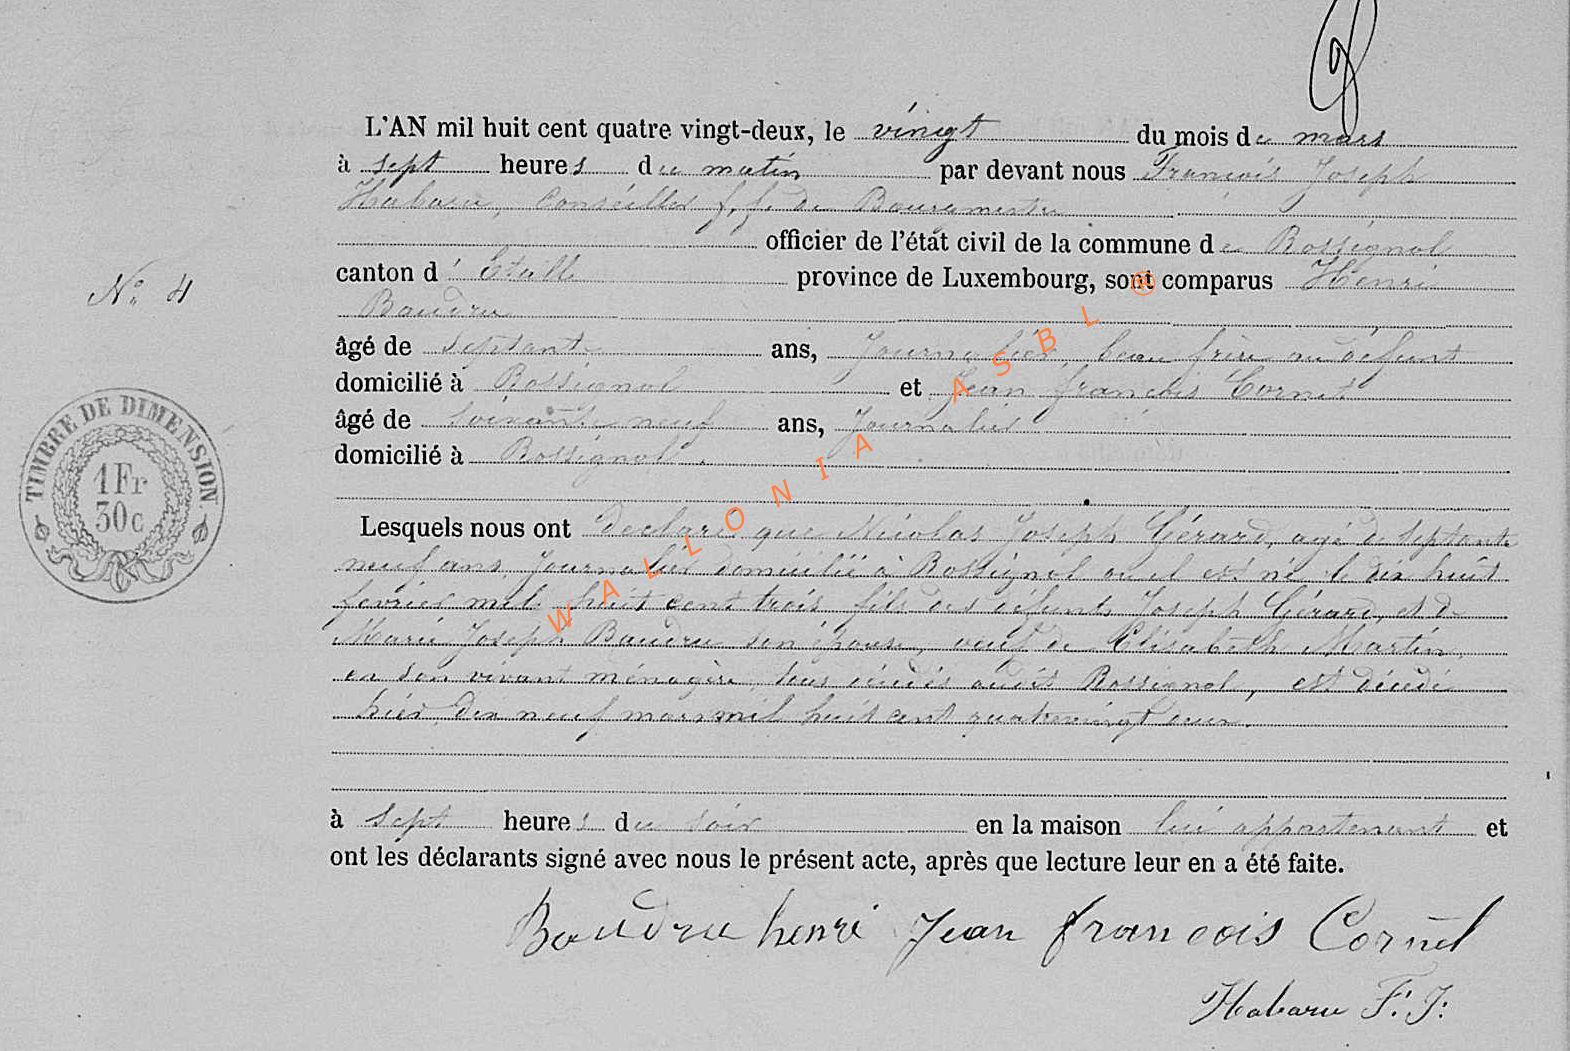 L'AN mil huit cent quatre vingt-deux, le vingt du mois de mars
à sept heures du matin par devant nous François Joseph
Habaru, Conseiller f.f. de Bourgmestre
officier de l'état civil de la commune de Rossignol
canton d'Etalle province de Luxembourg, sont comparus Henri
Baudru
âgé de septante ans, Journalier, beau frère au défunt
domicilié à Rossignol et Jean françois Cornet
N° 4
âgé de soixante neuf ans, Journalier
domicilié à Rossignol.
TIMBRE DE DIMENSION
1 Fr
30 c
Lesquels nous ont declaré que Nicolas Joseph Gérard, agé de septante
neuf ans, Journalier domicilié à Rossignol ou il est né le dix huit
fevrier mil huit cent trois, fils des défunts Joseph Gérard, et de
Marie Joseph Baudru son épouse, veuf de Elisabeth Martin,
en son vivant ménagère, tous décédés audit Rossignol, est décédé
hier dix neuf mars mil huit cent quatrevingt deux.
à sept heures du soir en la maison lui appartenant et
ont les déclarants signé avec nous le présent acte, après que lecture leur en a été faite.
Baudru henri Jean francois Cornet
Habaru F. J.
WALLONIA ASBL ®